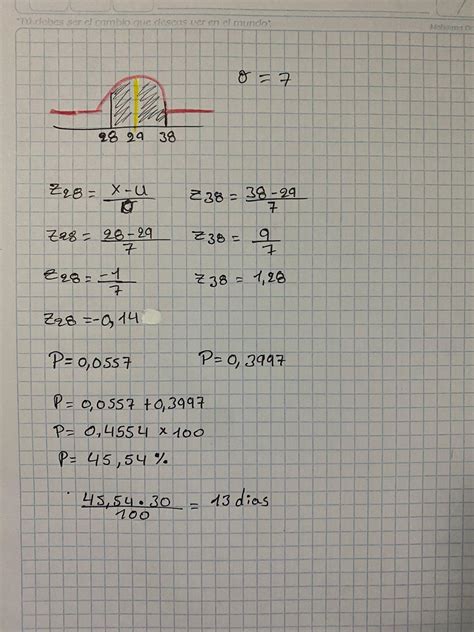 "Tú debes ser el cambio que deseas ver en el mundo".
σ = 7
28 29 38
Z28 = x-u/σ Z38 = 38-29/7
Z28 = 28-29/7 Z38 = 9/7
Z28 = -1/7 Z38 = 1,28
Z28 = -0,14
P= 0,0557 P= 0,3997
P= 0,0557 + 0,3997
P= 0,4554 x 100
P= 45,54 %
45,54 · 30/100 = 13 dias